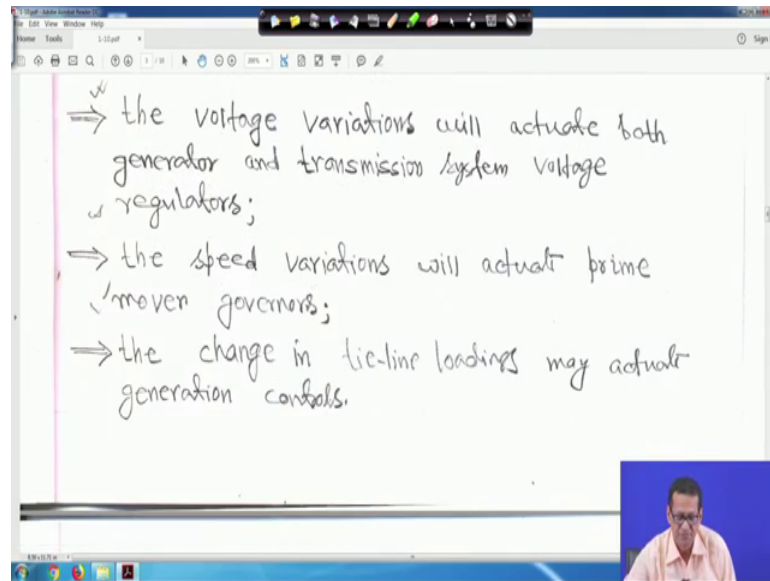 1-10.pdf - Adobe Acrobat Reader DC
File Edit View Window Help
Home Tools 1-10.pdf × Sign
200%
⇒ the voltage variations will actuate both
generator and transmission system voltage
regulators;
⇒ the speed variations will actuate prime
mover governors;
⇒ the change in tie-line loadings may actuate
generation controls.